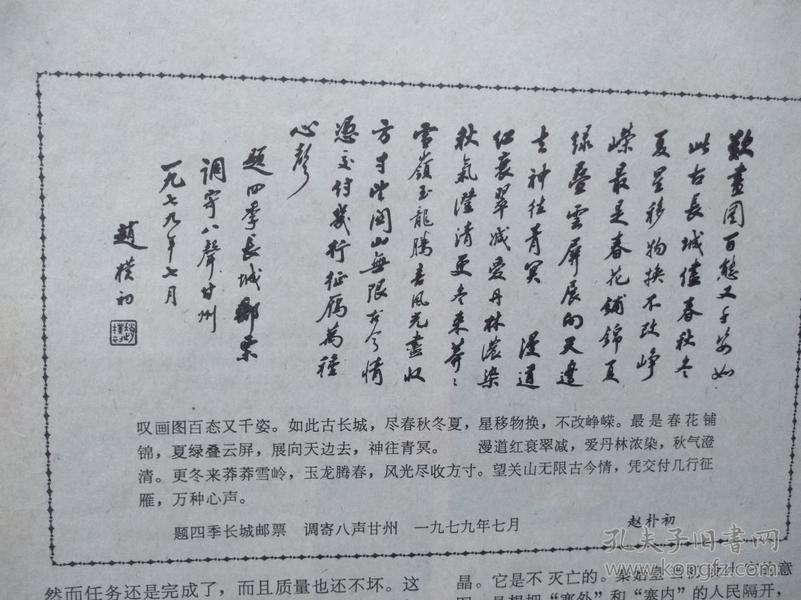 歎畫图百態又千姿如
此古長城儘春秋冬
夏星移物换不改峥
嵘最是春花铺錦夏
绿叠雲屏展向天邊
去神往青冥　漫道
红衰翠减爱丹林浓染
秋氣澄清更冬来莽々
雪嶺玉龍腾春风光盡收
方寸望関山無限古今情
憑交付幾行征雁萬種
心聲
题四季長城郵票
调寄八聲甘州
一九七九年七月
趙樸初
叹画图百态又千姿。如此古长城，尽春秋冬夏，星移物换，不改峥嵘。最是春花铺
锦，夏绿叠云屏，展向天边去，神往青冥。　　漫道红衰翠减，爱丹林浓染，秋气澄
清。更冬来莽莽雪岭，玉龙腾春，风光尽收方寸。望关山无限古今情，凭交付几行征
雁，万种心声。
题四季长城邮票　调寄八声甘州　一九七九年七月　赵朴初
然而任务还是完成了，而且质量也还不坏。这
晶。它是不灭亡的。秦始皇当时
意
是想把“塞外”和“塞内”的人民隔开，
孔夫子旧书网
www.kongfz.com